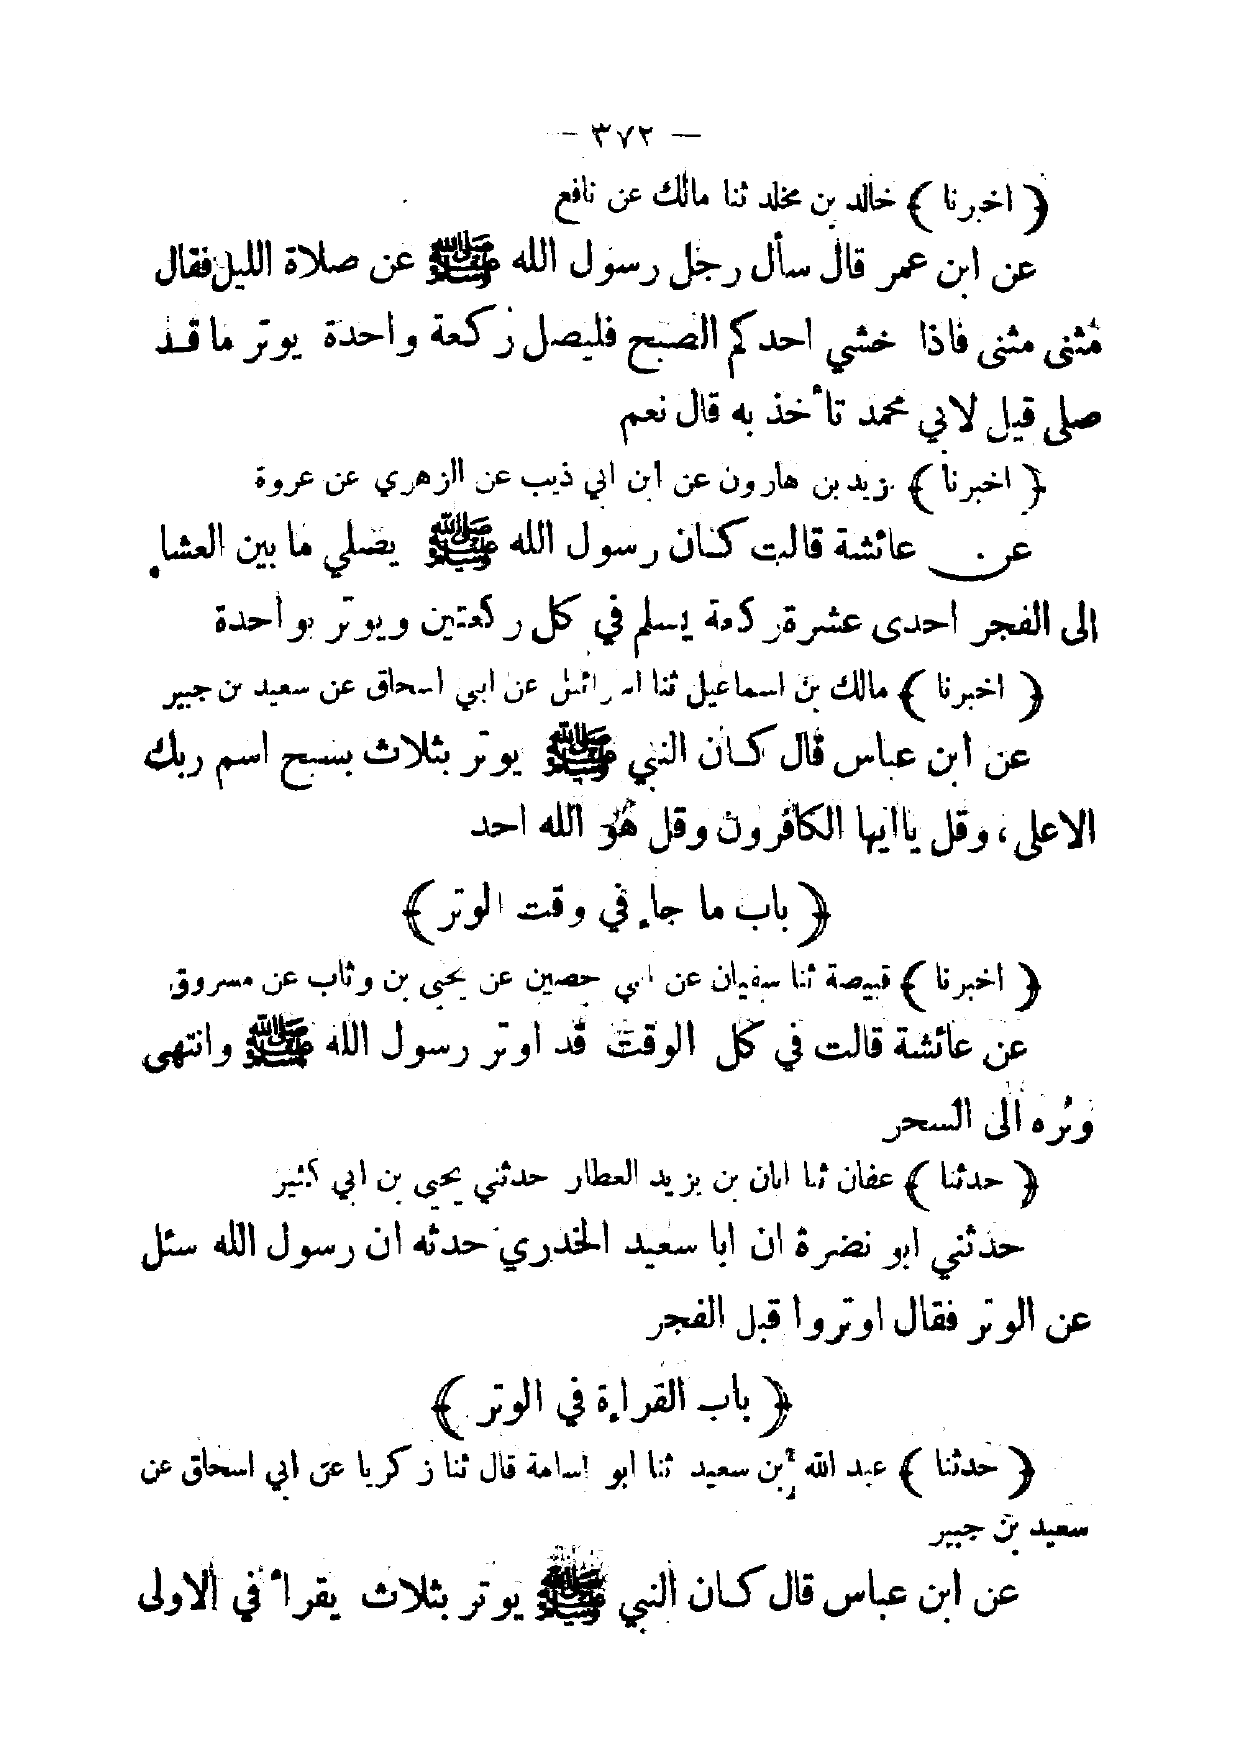 — ٣٧٢ —
﴿ اخبرنا ﴾ خالد بن مخلد ثنا مالك عن نافع
عن ابن عمر قال سأل رجل رسول الله ﷺ عن صلاة الليل فقال
مثنى مثنى فاذا خشي احدكم الصبح فليصل ركعة واحدة يوتر ما قد
صلى قيل لابي محمد تأخذ به قال نعم
﴿ اخبرنا ﴾ يزيد بن هارون عن ابن ابي ذيب عن الزهري عن عروة
عن عائشة قالت كان رسول الله ﷺ يصلي ما بين العشاء
الى الفجر احدى عشرة ركعة يسلم في كل ركعتين ويوتر بواحدة
﴿ اخبرنا ﴾ مالك بن اسماعيل ثنا اسرائيل عن ابي اسحاق عن سعيد بن جبير
عن ابن عباس قال كان النبي ﷺ يوتر بثلاث بسبح اسم ربك
الاعلى ، وقل ياايها الكافرون وقل هو الله احد
﴿ باب ما جاء في وقت الوتر ﴾
﴿ اخبرنا ﴾ قبيصة ثنا سفيان عن ابي حصين عن يحيى بن وثاب عن مسروق
عن عائشة قالت في كل الوقت قد اوتر رسول الله ﷺ وانتهى
وتره الى السحر
﴿ حدثنا ﴾ عفان ثنا ابان بن يزيد العطار حدثني يحيى بن ابي كثير
حدثني ابو نضرة ان ابا سعيد الخدري حدثه ان رسول الله سئل
عن الوتر فقال اوتروا قبل الفجر
﴿ باب القراءة في الوتر ﴾
﴿ حدثنا ﴾ عبد الله بن سعيد ثنا ابو اسامة قال ثنا زكريا عن ابي اسحاق عن
سعيد بن جبير
عن ابن عباس قال كان النبي ﷺ يوتر بثلاث يقرأ في الاولى